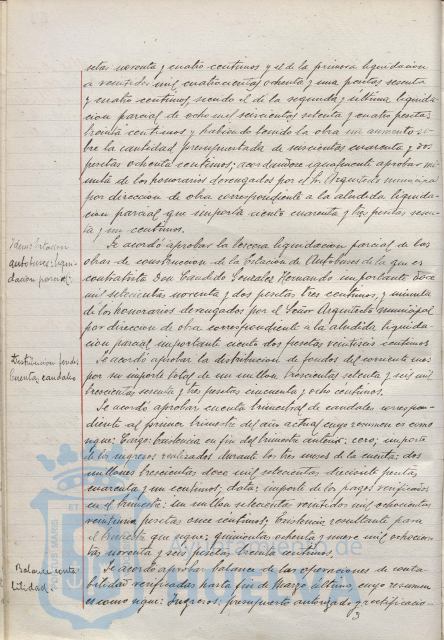 setas noventa y cuatro centimos y el de la primera liquidacion
a veintidos mil cuatrocientas ochenta y una pesetas sesenta
y cuatro centimos, siendo el de la segunda y última liquida
cion parcial de ocho mil seiscientas setenta y cuatro pesetas
treinta centimos y habiendo tenido la obra un aumento so-
bre la cantidad presupuestada de seiscientas cuarenta y dos
pesetas ochenta centimos; acordandose igualmente aprobar mi
nuta de los honorarios devengados por el Sr. Arquitecto municipal
por direccion de obra correspondiente a la aludida liquida-
cion parcial que importa ciento cuarenta y tres pesetas sesen
ta y un centimos.
Se acordó aprobar la tercera liquidacion parcial de las
obras de construccion de la Estación de Autobuses de la que es
contratista Don Candido Gonzalez Hernando importante doce
mil setecientas noventa y dos pesetas tres centimos, y minuta
de los honorarios devengados por el Señor Arquitecto municipal
por direccion de obra correspondiente a la aludida liquida-
cion parcial importante ciento dos pesetas veintiseis centimos
Se acordó aprobar la distribución de fondos del corriente mes
por su importe total de un millon trescientas setenta y seis mil
trescientas sesenta y tres pesetas cincuenta y ocho centimos.
Se acordó aprobar cuenta trimestral de caudales correspon-
diente al primer trimestre del año actual cuyo resumen es como
sigue: Cargo: Existencia en fin del trimestre anterior: cero; importe
de los ingresos realizados durante los tres meses de la cuenta: dos
millones trescientas doce mil setecientas diecisiete pesetas
cuarenta y un centimos, data; importe de los pagos verificados
en el trimestre: un millon setecientas veintidos mil ochocientas
veintiuna pesetas once centimos; Existencia resultante para
el trimestre que sigue; quinientas ochenta y nueve mil ochocien
tas noventa y seis pesetas treinta centimos.
Se acordó aprobar balance de las operaciones de conta-
bilidad verificadas hasta fin de Marzo último, cuyo resumen
es como sigue: Ingresos: presupuesto autorizado y rectificacio-
Idem Estacion
autobuses: liqui-
dación parcial.
Distribucion fondos
Cuentas caudales
Balance conta
bilidad.
Ayuntamiento de
HUELVA